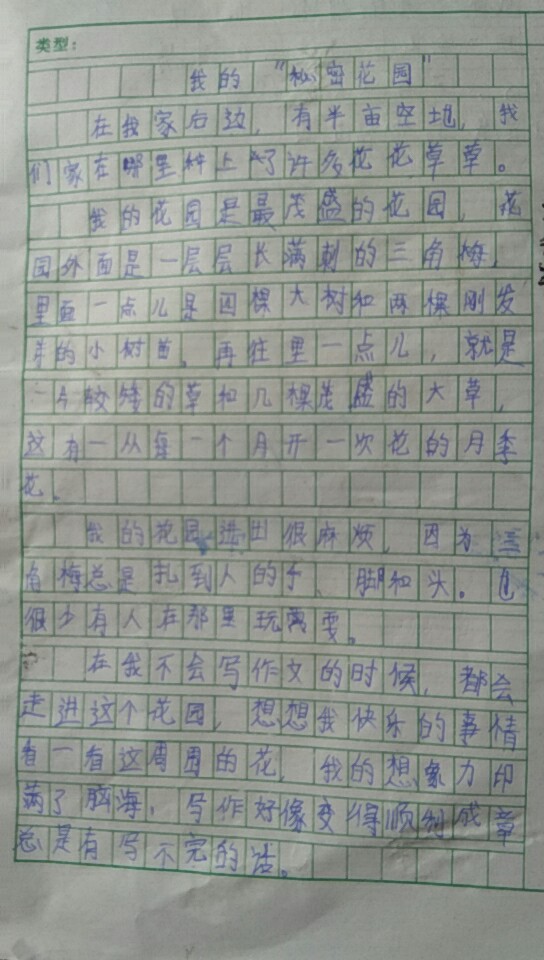 类型：
我的“秘密花园”
在我家后边，有半亩空地，我
们家在那里种上了许多花花草草。
我的花园是最茂盛的花园，花
园外面是一层层长满刺的三角梅，
里面一点儿是四棵大树和两棵刚发
芽的小树苗。再往里一点儿，就是
一片较矮的草和几棵茂盛的大草，
这有一从每一个月开一次花的月季
花。
我的花园进出很麻烦，因为三
角梅总是扎到人的手、脚和头。也
很少有人在那里玩耍。
在我不会写作文的时候，都会
走进这个花园，想想我快乐的事情
看一看这周围的花，我的想象力印
满了脑海，写作好像变得顺利成章
总是有写不完的话。